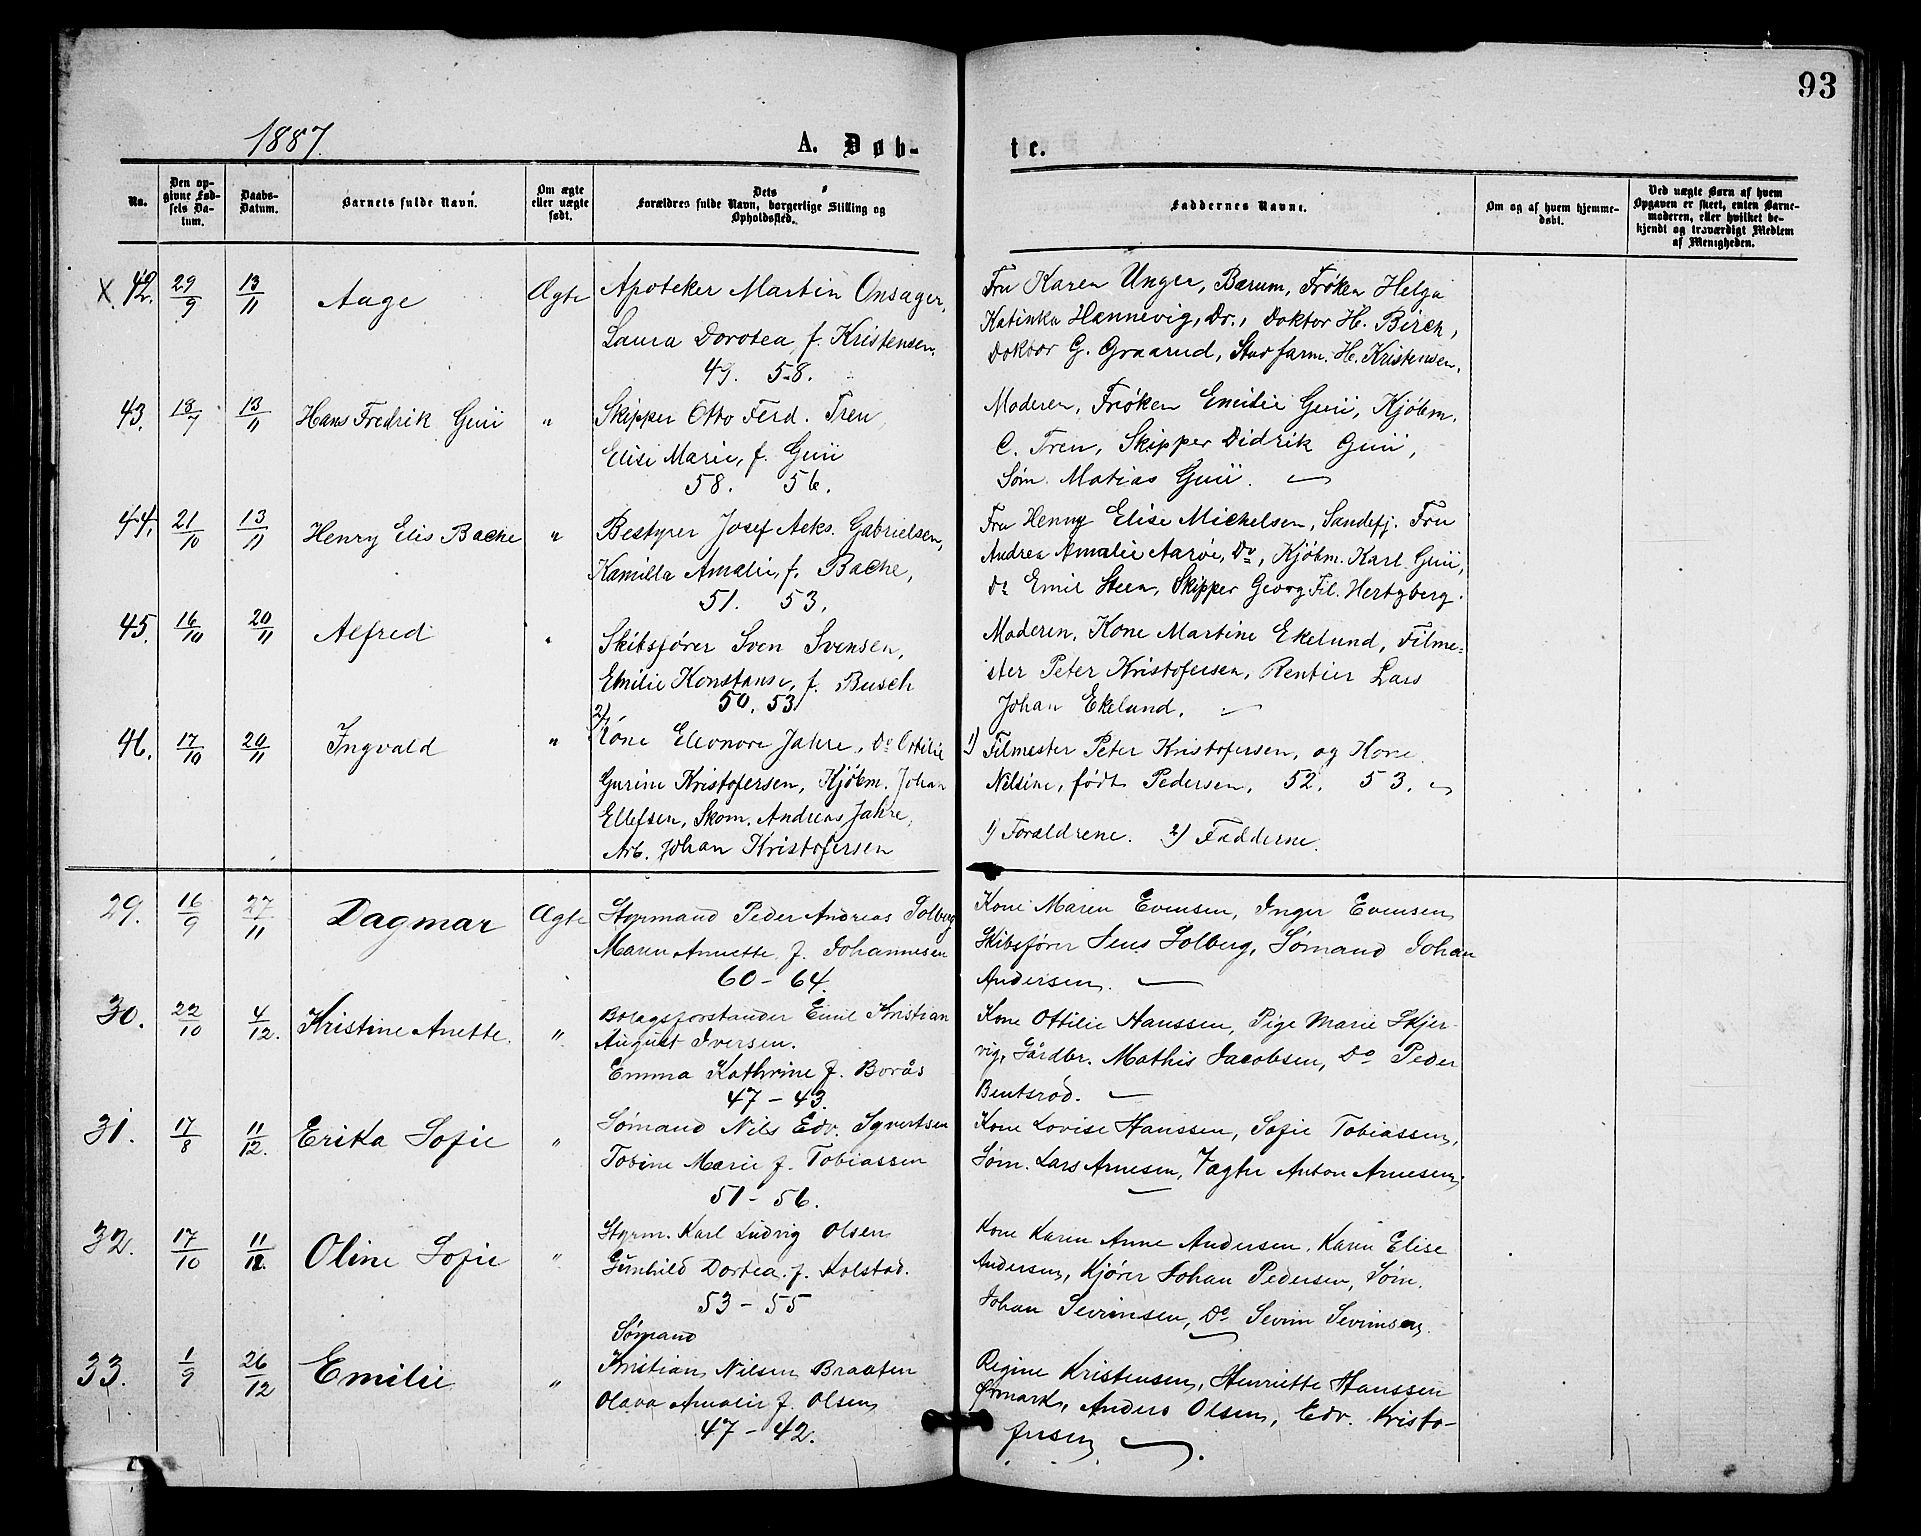 93
1887.
A. Døb-
te.
No.
Den op-
givne Fød-
sels Da-
tum.
Daabs-
Datum.
Barnets fulde Navn.
Om ægte
eller uægte
født.
Dets
Forældres fulde Navn, borgerlige Stilling og
Opholdssted.
Faddernes Navne.
Om og af hvem hjemme-
døbt.
Ved uægte Børn af hvem
Opgaven er skeet, enten Barne-
moderen, eller hvilket be-
kjendt og troværdigt Medlem
af Menigheden.
X. 42. 29/9 13/11 Aage Ægte Apoteker Martin Onsager,
Laura Dorotea, f. Kristensen.
49. 58.
Fru Karen Unger, Bærum, Frøken Helga
Katinka Hannevig, Do., Doktor H. Birch,
Doktor G. Graarud, Stud farm. H. Kristensen.
43. 18/7 13/11 Hans Fredrik Guii " Skipper Otto Ferd. Tren
Elise Marie, f. Guii
58. 56.
Moderen, Frøken Emilie Guii, Kjøbm.
C. Tren, Skipper Didrik Guii,
Søm. Matias Guii.
44. 21/10 13/11 Henry Elis Bache " Bestyrer Josef Aeks. Gabrielsen,
Kamilla Amalie, f. Bache,
51. 53.
Fru Henny Elise Michelsen, Sandefj. Fru
Andrea Amalie Aarøe, Do, Kjøbm. Karl Guii,
Do Emil Steen, Skipper Georg Fil. Hertzberg.
45. 16/10 20/11 Alfred " Skibsfører Sven Svensen,
Emilie Konstanse, f. Busch
50. 53.
Moderen, Kone Martine Ekelund, Filme-
ster Peter Kristofersen, Rentier Lars
Johan Ekelund.
46. 17/10 20/11 Ingvald " 2) Kone Eleonore Jahre, Do Otilie
Gurine Kristofersen, Kjøbm. Johan
Ellefsen, Skom. Andreas Jahre,
Arb. Johan Kristofersen
1) Filmester Peter Kristofersen, og Kone
Nilsine, født Pedersen, 52. 53.
1) Forældrene. 2) Fadderne.
29. 16/9 27/11 Dagmar Ægte Styrmand Peder Andreas Solberg
Maren Annette f. Johannesen
60 - 64.
Kone Maren Evensen, Inger Evensen
Skibsfører Jens Solberg, Sømand Johan
Andersen.
30. 22/10 4/12. Kristine Anette. " Bolagsforstander Emil Kristian
August Iversen.
Emma Kathrine f. Borås
47 - 43.
Kone Ottilie Hanssen, Pige Marie Skjer-
vig, Gårdbr. Mathis Jacobsen, Do Peder
Bentsrød.
31. 17/8 11/12. Erika Sofie " Sømand Nils Edv. Syvertsen
Tobine Marie f. Tobiassen
51 - 56.
Kone Lovise Hanssen, Sofie Tobiassen,
Søm. Lars Arnesen, Vægter Anton Arnesen,
32. 17/10 11/12. Oline Sofie " Styrm. Karl Ludvig Olsen
Gunhild Dortea f. Kolstad.
53 - 55
Kone Karen Anne Andersen, Karen Elise
Andersen, Kjører Johan Pedersen, Søm.
Johan Sevrinsen, Do Sevrin Sevrinsen.
33. 1/9 26/12 Emilie " Sømand
Kristian Nilsen Braaten
Olava Amalie f. Olsen
47 - 42.
Regine Kristensen, Henriette Hanssen
Ormark, Anders Olsen, Edv. Kristo-
fersen.